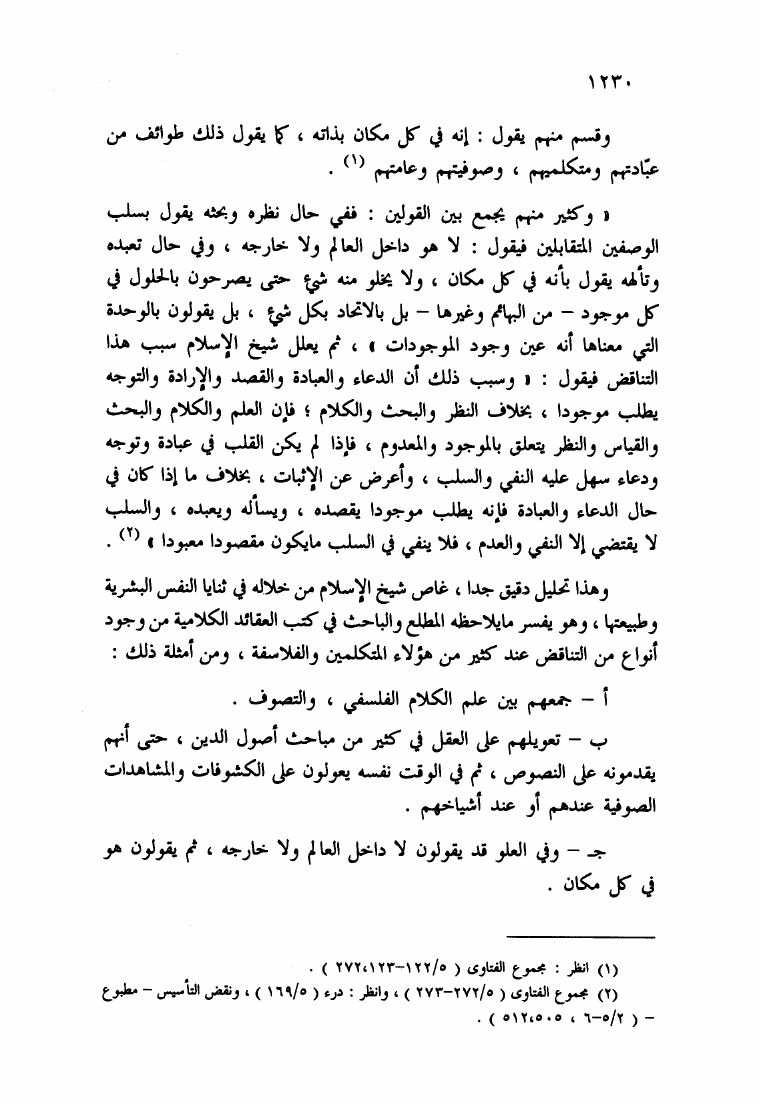 ١٢٣٠
وقسم منهم يقول : إنه في كل مكان بذاته ، كما يقول ذلك طوائف من
عبّادتهم ومتكلميهم ، وصوفيتهم وعامتهم (١) .
« وكثير منهم يجمع بين القولين : ففي حال نظره وبحثه يقول بسلب
الوصفين المتقابلين فيقول : لا هو داخل العالم ولا خارجه ، وفي حال تعبده
وتألهه يقول بأنه في كل مكان ، ولا يخلو منه شيء حتى يصرحون بالحلول في
كل موجود – من البهائم وغيرها – بل بالاتحاد بكل شيء ، بل يقولون بالوحدة
التي معناها أنه عين وجود الموجودات » ، ثم يعلل شيخ الإسلام سبب هذا
التناقض فيقول : « وسبب ذلك أن الدعاء والعبادة والقصد والإرادة والتوجه
يطلب موجودا ، بخلاف النظر والبحث والكلام ؛ فإن العلم والكلام والبحث
والقياس والنظر يتعلق بالموجود والمعدوم ، فإذا لم يكن القلب في عبادة وتوجه
ودعاء سهل عليه النفي والسلب ، وأعرض عن الإثبات ، بخلاف ما إذا كان في
حال الدعاء والعبادة فإنه يطلب موجودا يقصده ، ويسأله ويعبده ، والسلب
لا يقتضي إلا النفي والعدم ، فلا ينفي في السلب مايكون مقصودا معبودا » (٢) .
وهذا تحليل دقيق جدا ، غاص شيخ الإسلام من خلاله في ثنايا النفس البشرية
وطبيعتها ، وهو يفسر مايلاحظه المطلع والباحث في كتب العقائد الكلامية من وجود
أنواع من التناقض عند كثير من هؤلاء المتكلمين والفلاسفة ، ومن أمثلة ذلك :
أ – جمعهم بين علم الكلام الفلسفي ، والتصوف .
ب – تعويلهم على العقل في كثير من مباحث أصول الدين ، حتى أنهم
يقدمونه على النصوص ، ثم في الوقت نفسه يعولون على الكشوفات والمشاهدات
الصوفية عندهم أو عند أشياخهم .
جـ – وفي العلو قد يقولون لا داخل العالم ولا خارجه ، ثم يقولون هو
في كل مكان .
(١) انظر : مجموع الفتاوى ( ١٢٢/٥–٢٧٢،١٢٣ ) .
(٢) مجموع الفتاوى ( ٢٧٢/٥–٢٧٣ ) ، وانظر : درء ( ١٦٩/٥ ) ، ونقض التأسيس – مطبوع
– ( ٥/٢–٦ ، ٥١٢،٥٠٥ ) .